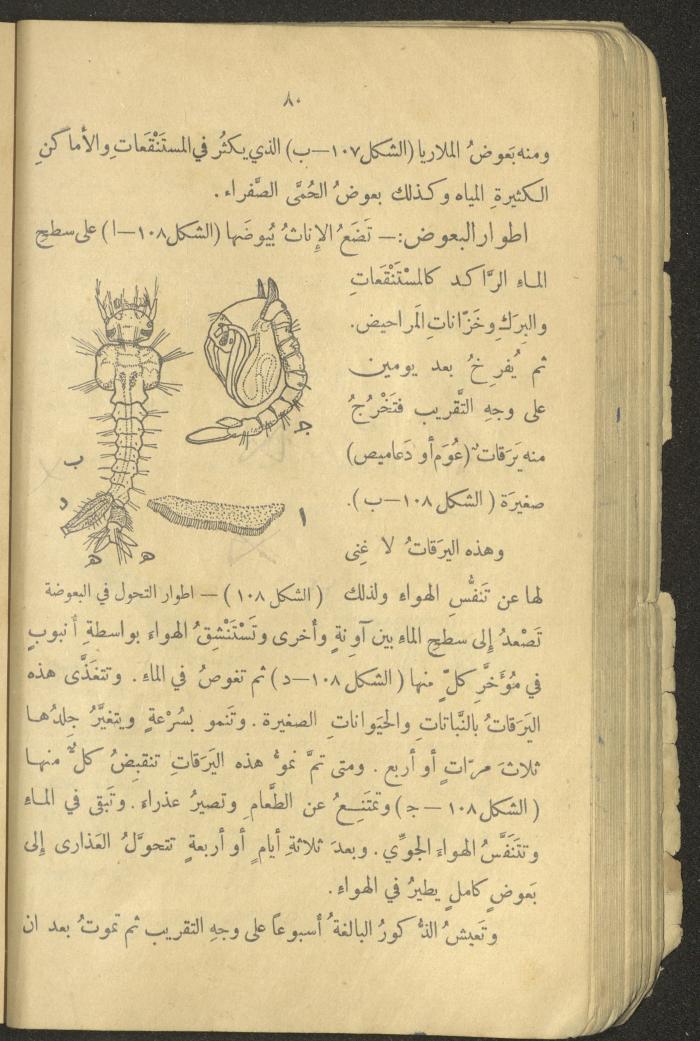 ٨٠
ومنه بَعوضُ الملاريا (الشكل ١٠٧—ب) الذي يكثُر في المستَنْقَعاتِ والأماكنِ
الكثيرةِ المياه وكذلك بعوضُ الحُمَّى الصَّفراء .
اطوار البعوض :— تَضَعُ الإناثُ بُيوضَها (الشكل ١٠٨—ا) على سطحِ
الماءِ الرَّاكد كالمسْتَنْقَعاتِ
والبِرَكِ وخَزّاناتِ المَراحيض.
ثم يُفرِخُ بعد يومين
على وجهِ التَّقريب فتَخْرُجُ
منه يَرَقاتٌ (عُوَم أو دَعاميص)
صغيرَة ( الشكل ١٠٨—ب ).
وهذه اليرَقاتُ لا غِنى
لها عن تَنفُّسِ الهواءِ ولذلك
ج
ب
د
ا
ه
ه
( الشكل ١٠٨ ) — اطوار التحول في البعوضة
تَصْعدُ إلى سطحِ الماءِ بين آونةٍ وأخرى وتَسْتَنْشِقُ الهواء بواسطةِ أنبوبٍ
في مُؤَخَّرِ كلّ منها ( الشكل ١٠٨—د ) ثم تغوصُ في الماءِ . وتتغَذَّى هذه
اليَرَقاتُ بالنَّباتاتِ والحَيَوانات الصغيرة . وتَنمو بسُرْعةٍ ويتغيَّرُ جِلدُها
ثلاثَ مرّاتٍ أو أربع . ومتى تمَّ نموُّ هذه اليَرَقاتِ تنقبِضُ كلٌّ منها
( الشكل ١٠٨ — ج ) وتمتَنِعُ عن الطَّعامِ وتصيرُ عذراء . وتَبقى في الماءِ
وتتَنَفَّسُ الهواءَ الجوِّي . وبعدَ ثلاثةِ أيامٍ أو أربعةٍ تتحوَّلُ العَذارى إلى
بَعوضٍ كاملٍ يطيرُ في الهواءِ .
وتَعيشُ الذُّكورُ البالغةُ أسبوعاً على وجهِ التقريب ثم تموتُ بعد ان